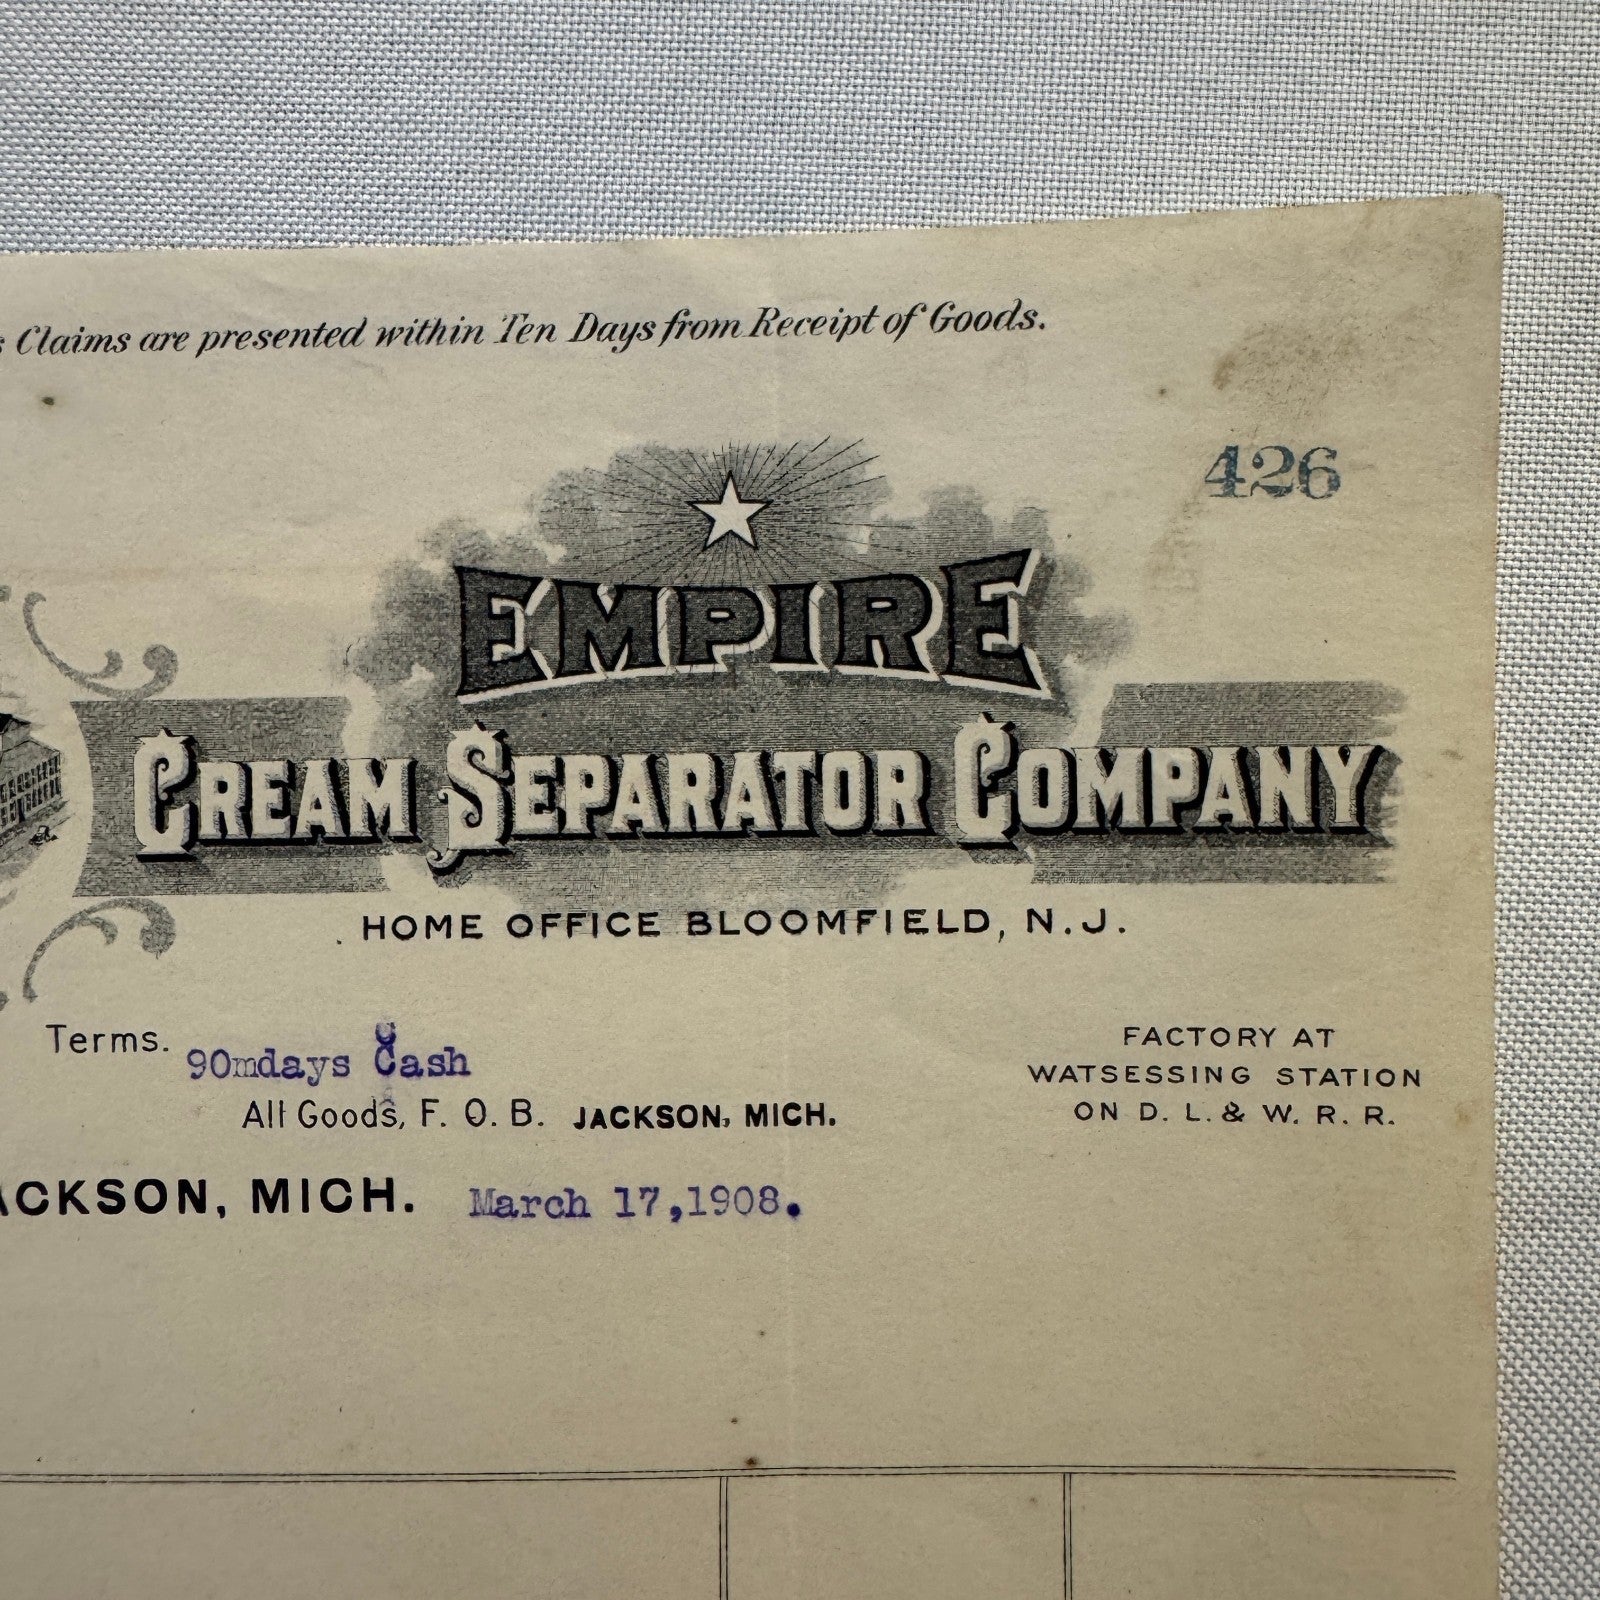 Claims are presented within Ten Days from Receipt of Goods.
426
EMPIRE
CREAM SEPARATOR COMPANY
HOME OFFICE BLOOMFIELD, N.J.
Terms. 90mdays Cash
All Goods, F. O. B. JACKSON, MICH.
FACTORY AT
WATSESSING STATION
ON D. L. & W. R. R.
ACKSON, MICH. March 17,1908.